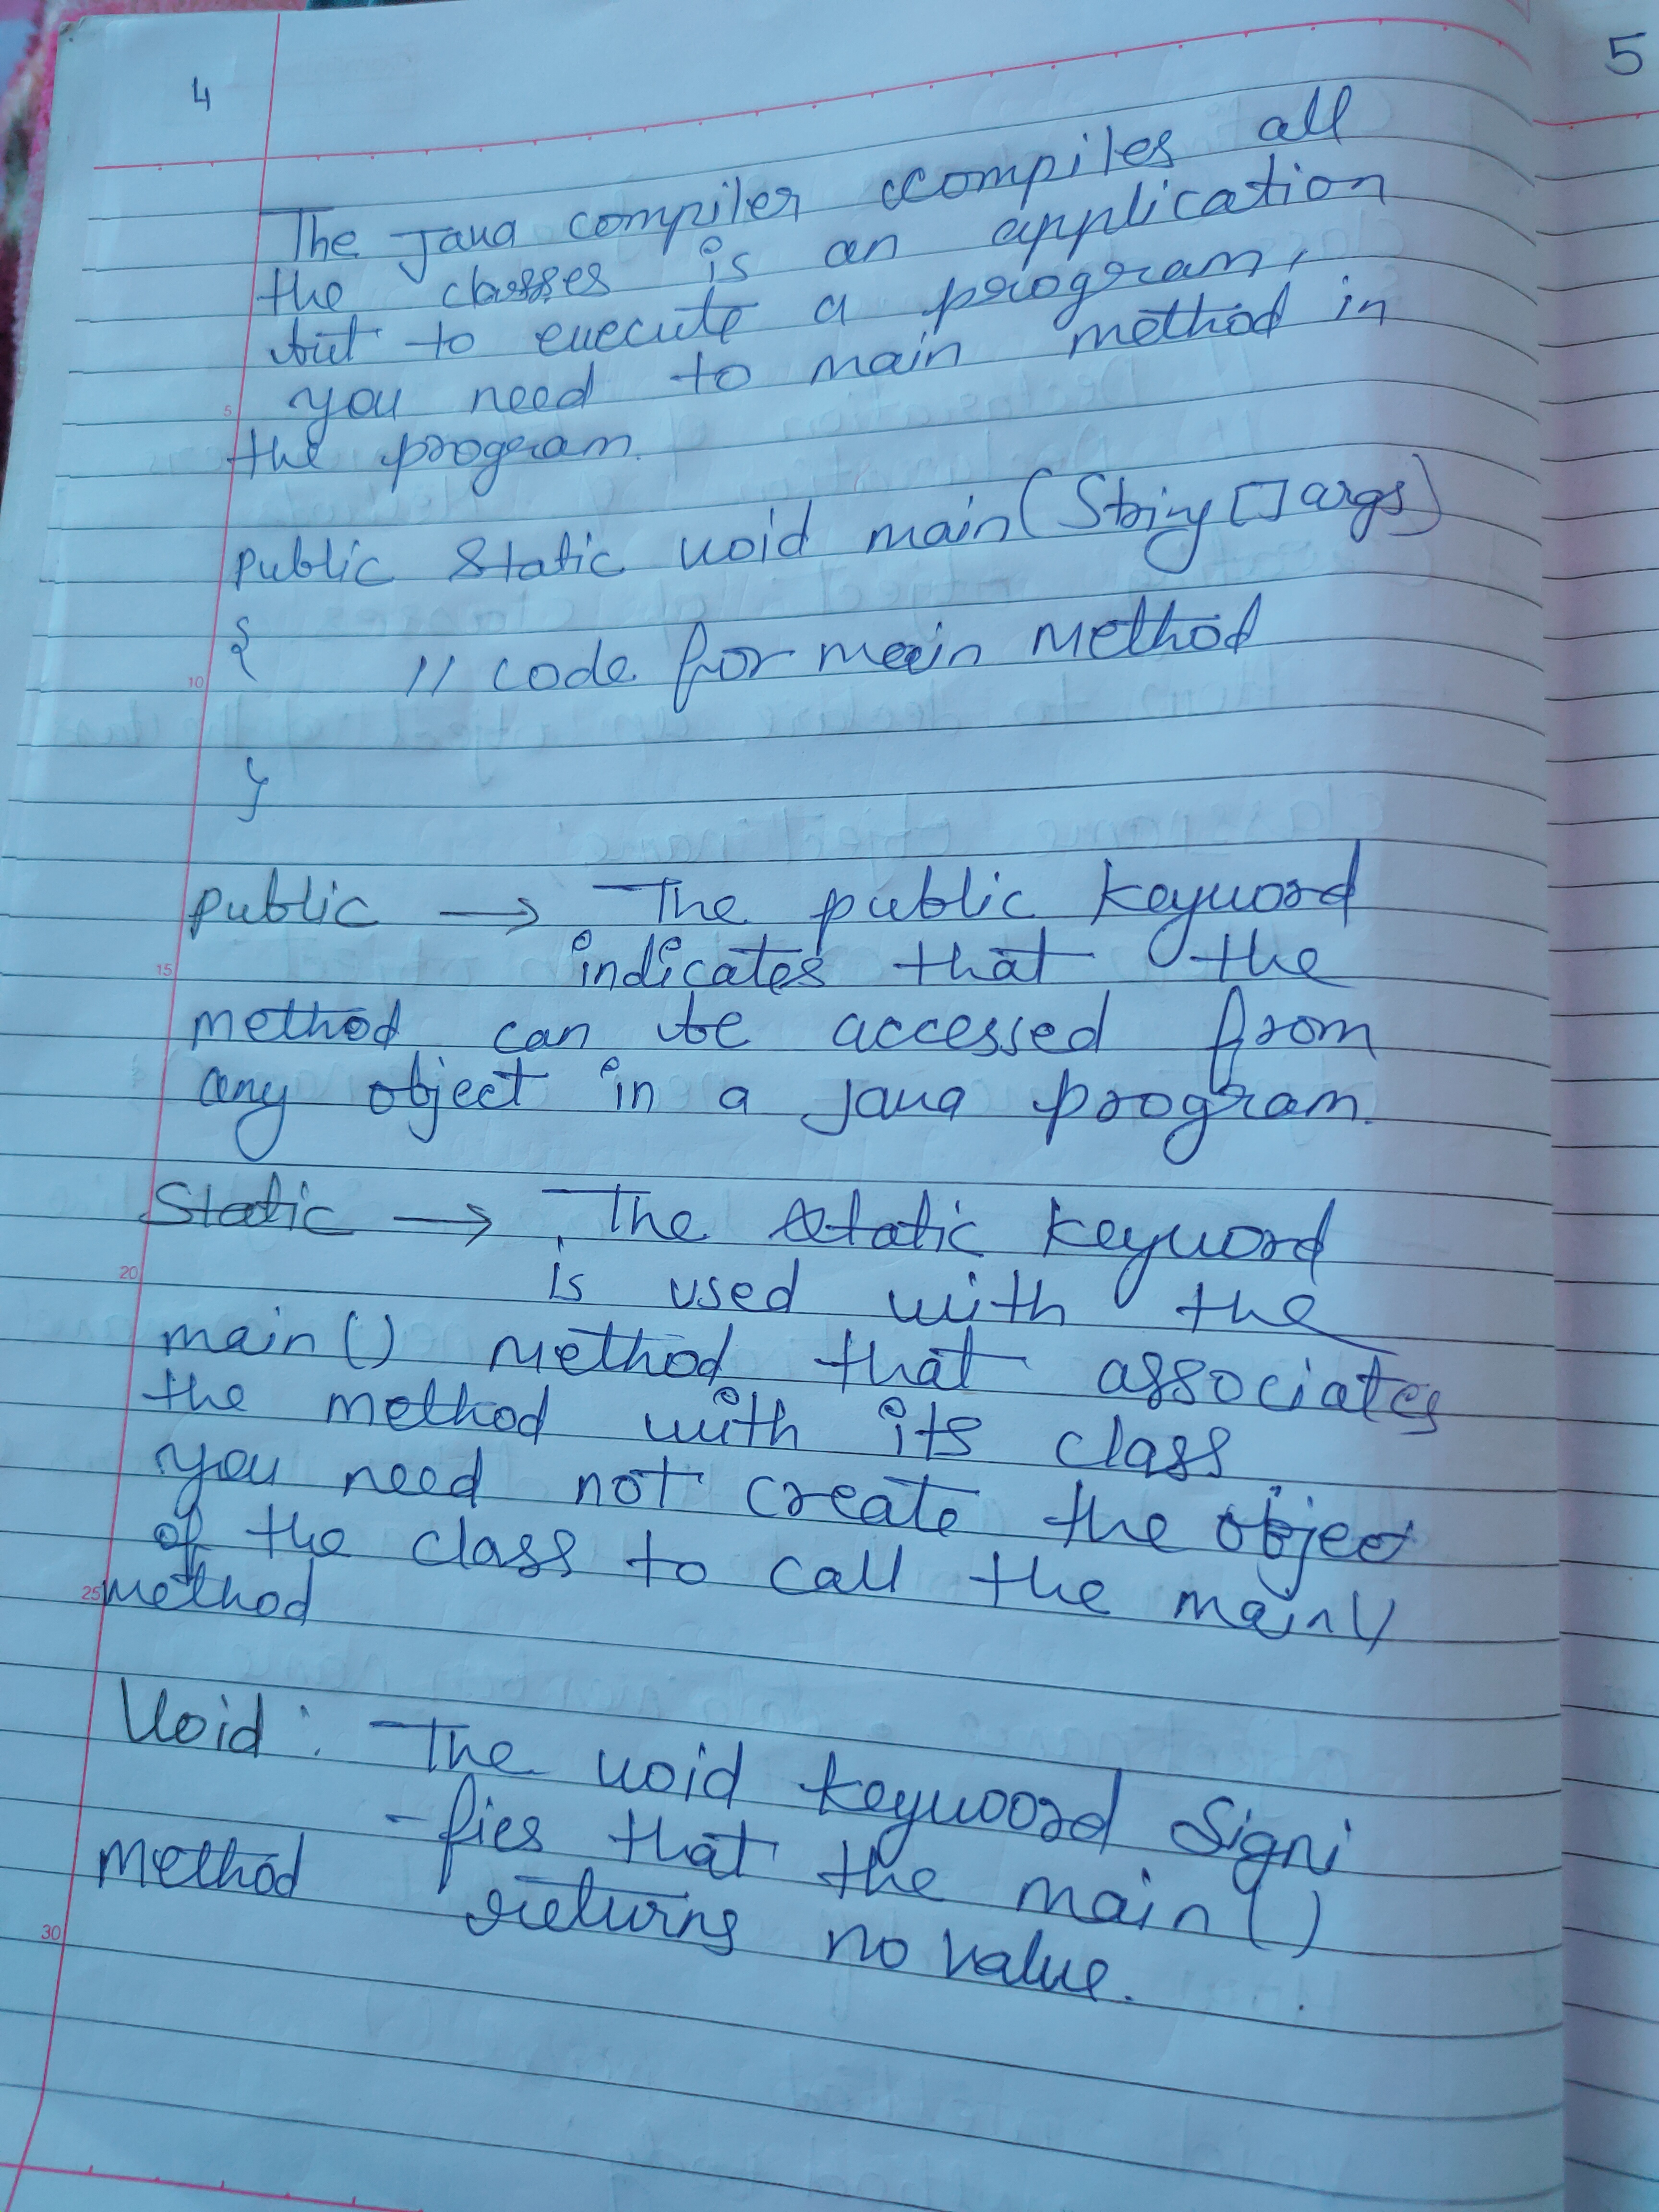 4
5
The Java compiler compiles all
the classes is an application
but to execute a program,
you need to main method in
the program.
public static void main(String [] args)
{ // code for main method
}
public → The public keyword
indicates that the
method can be accessed from
any object in a Java program.
Static → The static keyword
is used with the
main() method that associates
the method with its class
you need not create the object
of the class to call the main()
method
Void : The void keywoord Signi
-fies that the main()
method returns no value.